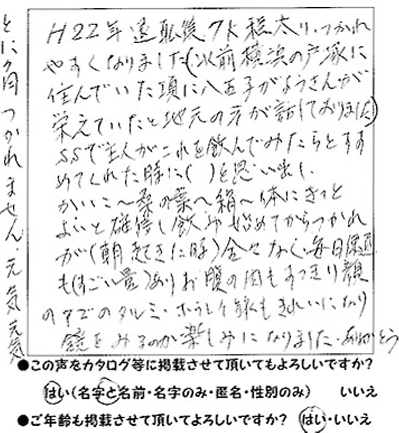 H22年 退職後 7kg 程太り、つかれ
やすくなりました(以前横浜の戸塚に
住んでいた頃に八王子がようさんが
栄えていたと地元の方が話しておりました)
SSで主人がこれを飲んでみたらとすす
めてくれた時に( )を思い出し、
かいこ〜桑の葉〜絹〜体にきっと
よいと確信し飲み始めてからつかれ
が(朝起きた時)全々なく、毎日便通
も(すごい量)ありお腹の肉もすっきり顔
のアゴのタルミ・ホウレイ線もきれいになり
鏡をみるのが楽しみになりました・ありがとう
とに角つかれません。元気元気
●この声をカタログ等に掲載させて頂いてもよろしいですか?
はい(名字と名前・名字のみ・匿名・性別のみ) いいえ
●ご年齢も掲載させて頂いてよろしいですか? はい・いいえ